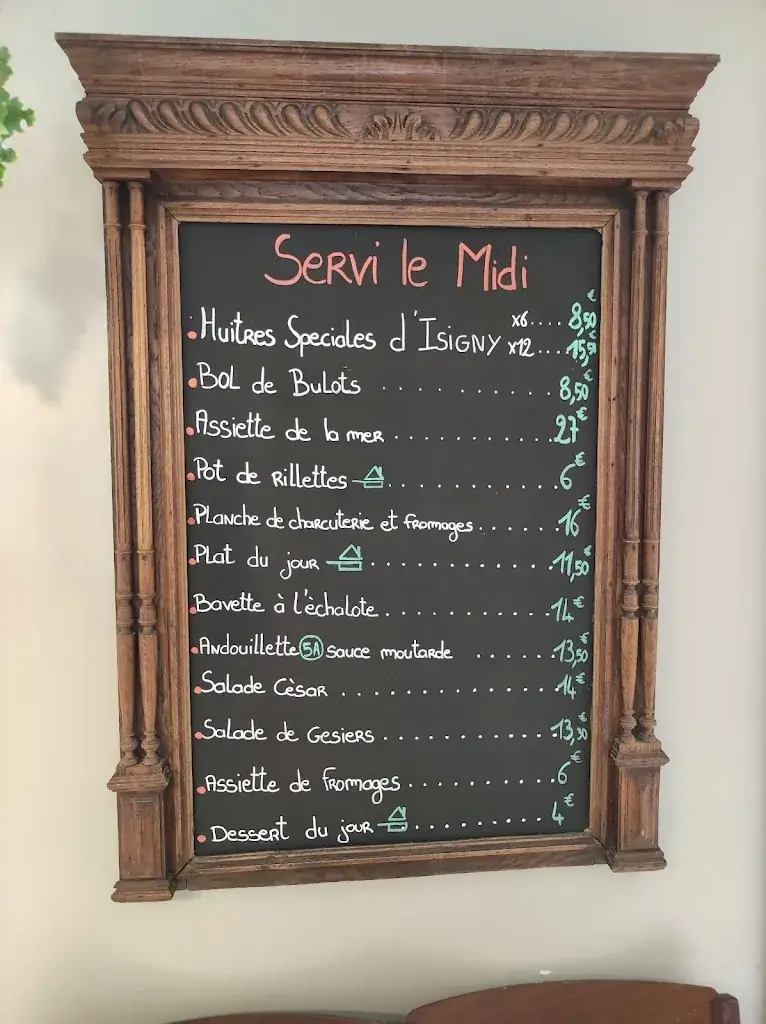 Servi le Midi
Huitres Speciales d'Isigny x6.... 8,50€
x12...15,50€
Bol de Bulots . . . . . . . . . . . 8,50€
Assiette de la mer . . . . . . . . . . . 27€
Pot de rillettes . . . . . . . . . . . 6€
Planche de charcuterie et fromages . . . . . . 16€
Plat du jour . . . . . . . . . . . . 11,50€
Bavette à l'èchalote . . . . . . . . . . . . 14€
Andouillette 5A sauce moutarde . . . . . . 13,50€
Salade Cèsar . . . . . . . . . . . . . . 14€
Salade de Gesiers . . . . . . . . . . . . 13,30€
Assiette de fromages . . . . . . . . . . 6€
Dessert du jour . . . . . . . . . . 4€